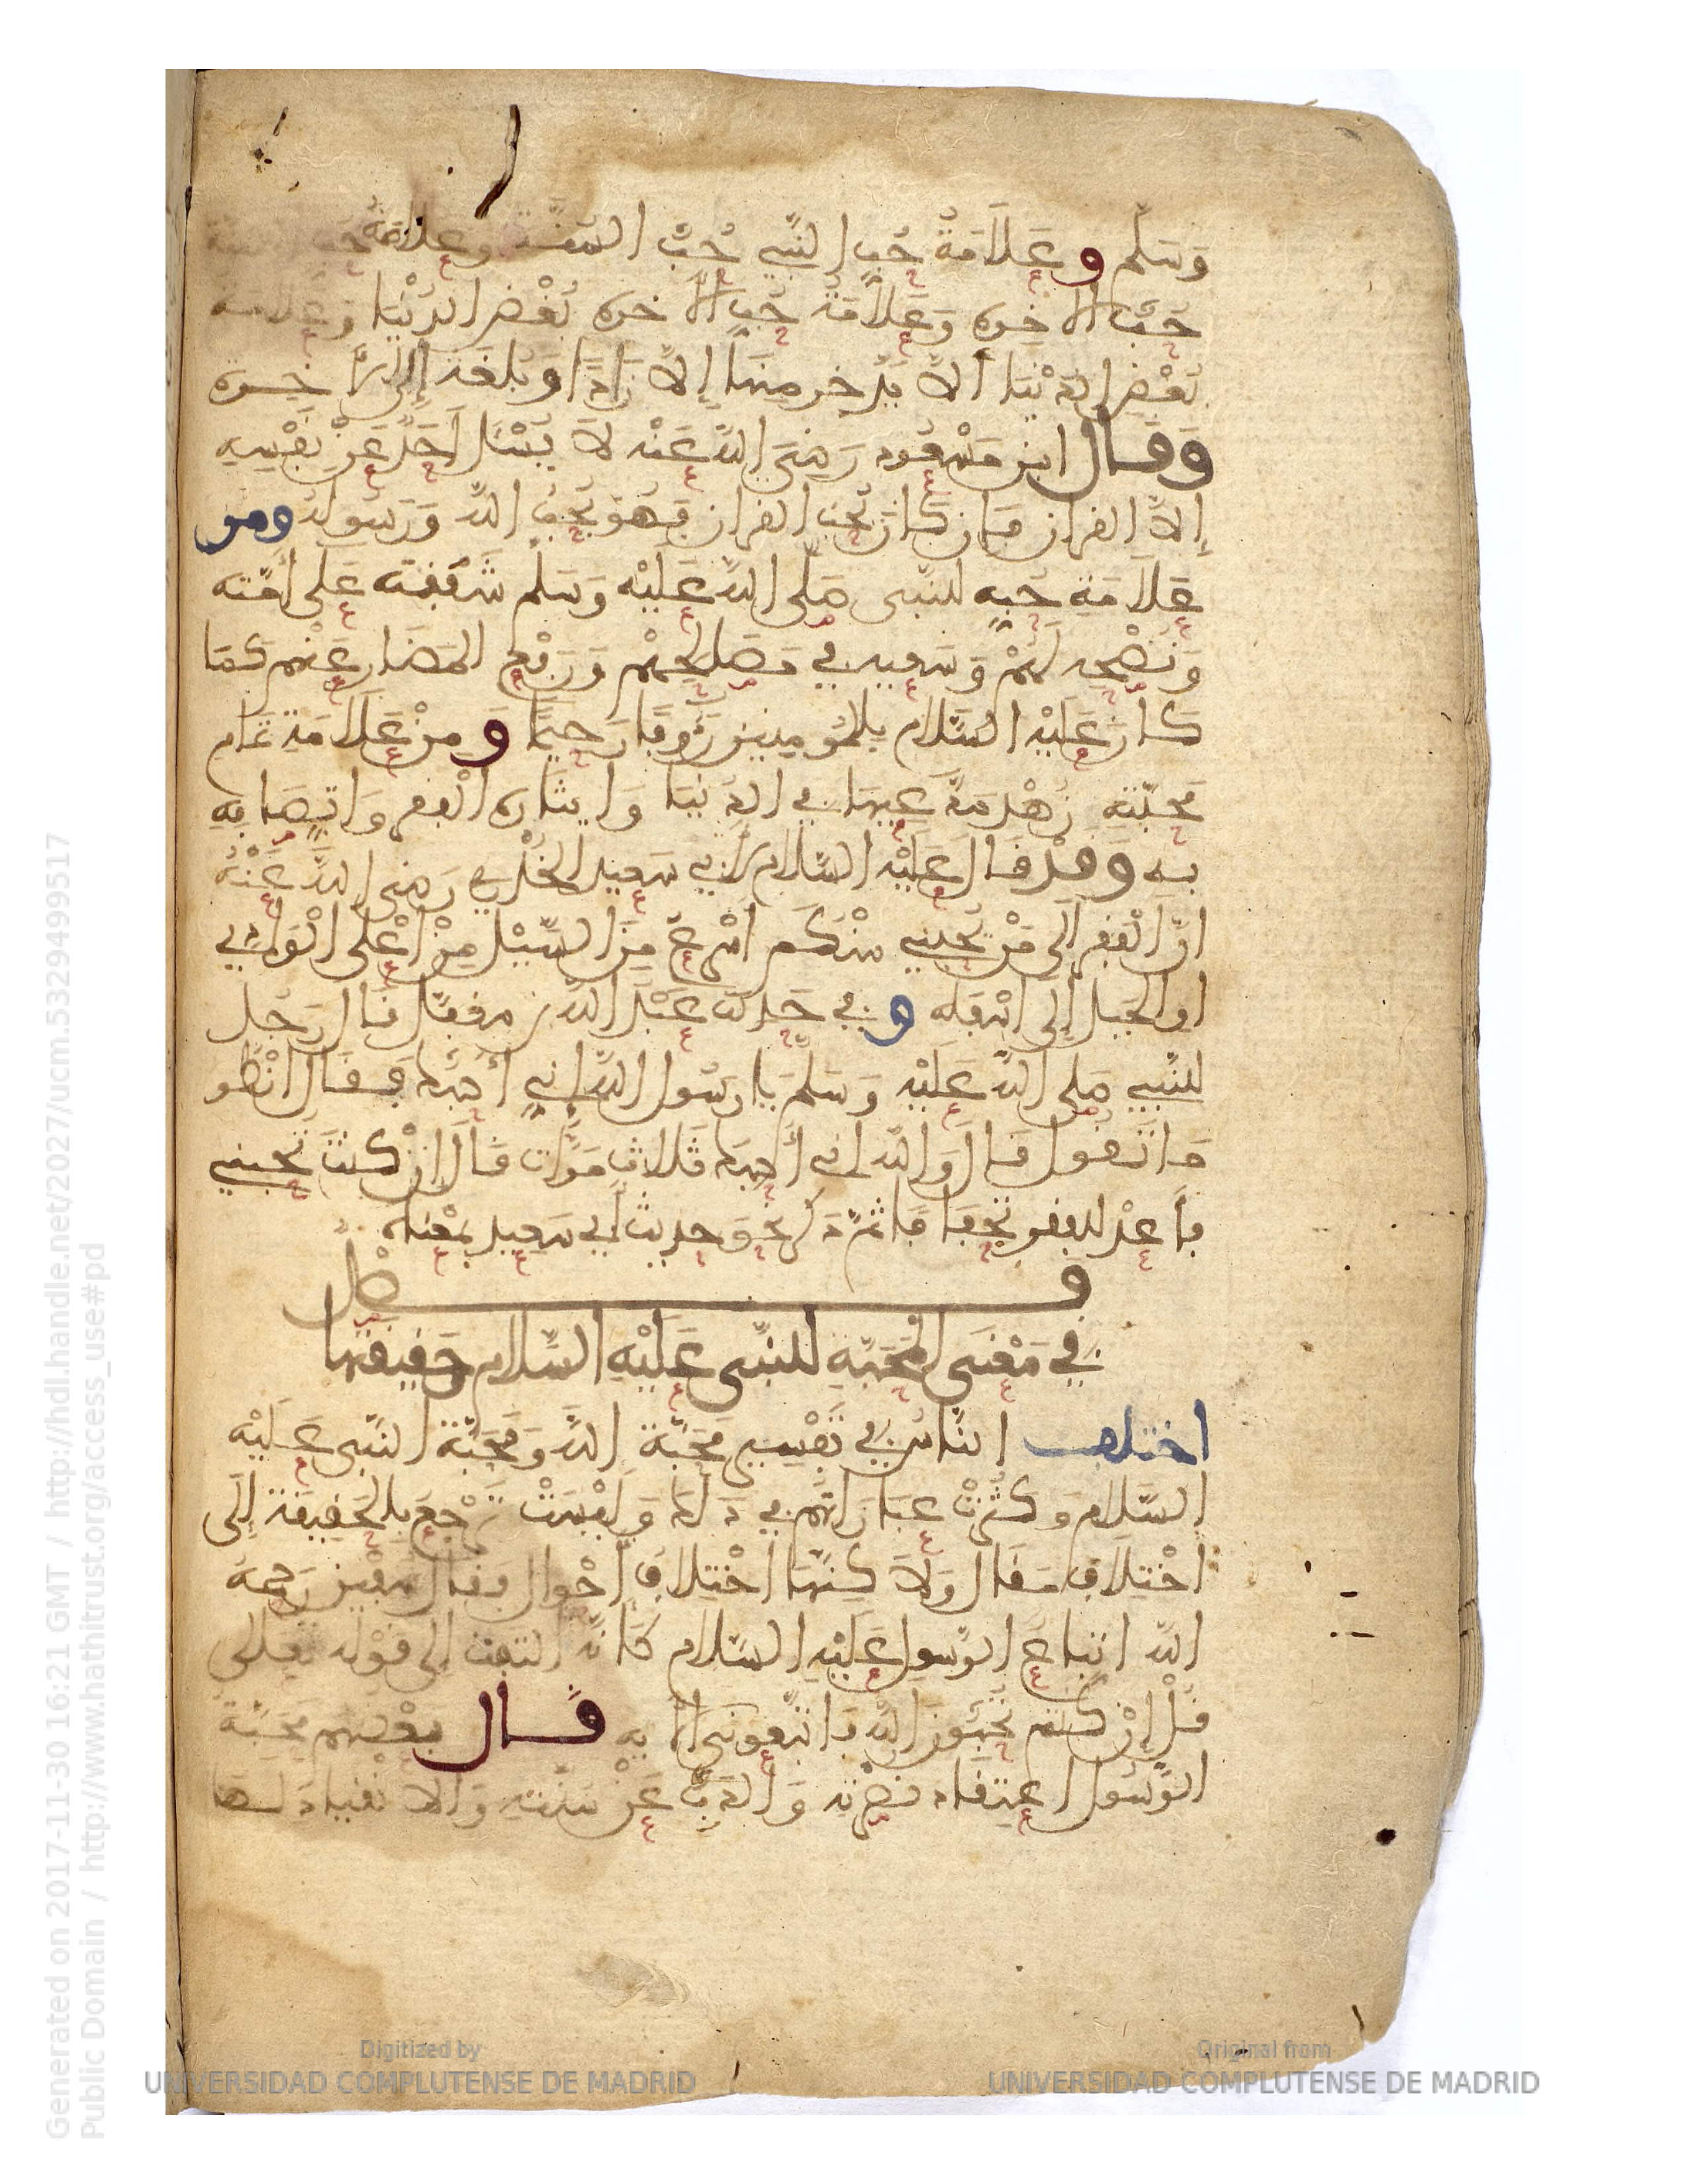 وَسَلم وعَلَامَةُ حُبِّ النَّبِيِ حُبُّ السُّنَّة وعلامَةُ حُبِّ السنة
حُبُّ الاخِرة وَعَلَامَةُ حُبِّ الاخرة بُغْضُ الدُنْيَا وَعَلامة
بُغْضِ الدُنْيَا ألّا يَدَّخِر مِنهَا إلَّا زَادًا وبُلغَة إلى الأخِــرة
وَقَــال ابن مَسْعُود رَضِيَ اللهُ عَنْه لَا يَسْئَل أَحَدٌ عَنْ نَفْسِهِ
إلَّا القرءان فَإن كَانَ يُحِبُّ القرءان فَهُوَ يُحِبُّ اللهَ وَرَسُولَهُ ومن
عَلَامَةِ حُبِّهِ للنَّبي صَلى اللهُ عَلَيْه وَسَلم شَفَقَته عَلى أُمَّته
وَنُصْحُه لَهُمْ وَسَعيه في مَصَالِحِهِمْ وَرَفْعِ المَضَار عَنْهم كَمَا
كَانَ عَلَيْه السَّلام بِالمُومِنِين رَءُوفًا رَحِيمًا وَمِنْ عَلَامَة تمَام
مَحَبَّتِهِ زُهْد مُدَّعِيهَا في الدُنْيَا وَايثَاره الْفقر وَاتِّصَافِهِ
بِهِ وَقدْ قَالَ عَلَيْه السَّلام لأبي سَعِيد الخُدْرِي رَضِيَ اللهُ عَنْهُ
انَّ الْفَقر إلَى مَنْ يُحِبُّنِي مِنْكُم أسْرَعُ مِنَ السَّيْل مِنْ أعْلى الْوَادِي
او الجَبَل إلَى أسْفَلِهِ وفي حَدِيث عَبْد الله بن مغفّل قَال رَجُل
للنَّبِي صَلى اللهُ عَلَيْه وَسَلمَ يا رسُول الله إني أُحِبُّكَ فَقَال انْظُر
مَا تَقُول قَال وَالله إني أُحِبُّكَ ثَلاث مَرَّات قَال إنْ كنتَ تُحِبُّنِي
فأعِدْ للفقر تجفافا ثمّ ذَكر نحو حديث أبي سعيد بمَعْنَاه
فــصل
في مَعْنَى الْمَحَبَّةِ للنَّبِي عَلَيْهِ السَّلام وَحَقِيقَتهَا
اختلف النَّاسُ في تَفْسِير مَحَبَّة الله وَمَحَبَّة النَّبي عَــلَيْه
السَّلام وكثُرَتْ عِبَارَاتهُم في ذَلك وَلَيْسَتْ تَرْجِعُ بالحَقِيقَة إلَى
اخْتِلَاف مَقَال وَلَاكِنَّهَا اخْتِلَاف أحْوال فقَال سُفْيَن رَحِمَهُ
اللهُ اتباع الرَّسول عَلَيْهِ السَّلام كَأنَّه التَفَت إلى قَوْله تَعَالى
قُلْ إنْ كنتم تُحِبُّونَ اللهَ فَاتَّبِعُونِي الآية قــال بعضهم مَحَبَّة
الرَّسُول اعتقاد نصْرته وَالذَّبُّ عَنْ سُنَّتِهِ وَالانْقِيَاد لهَا